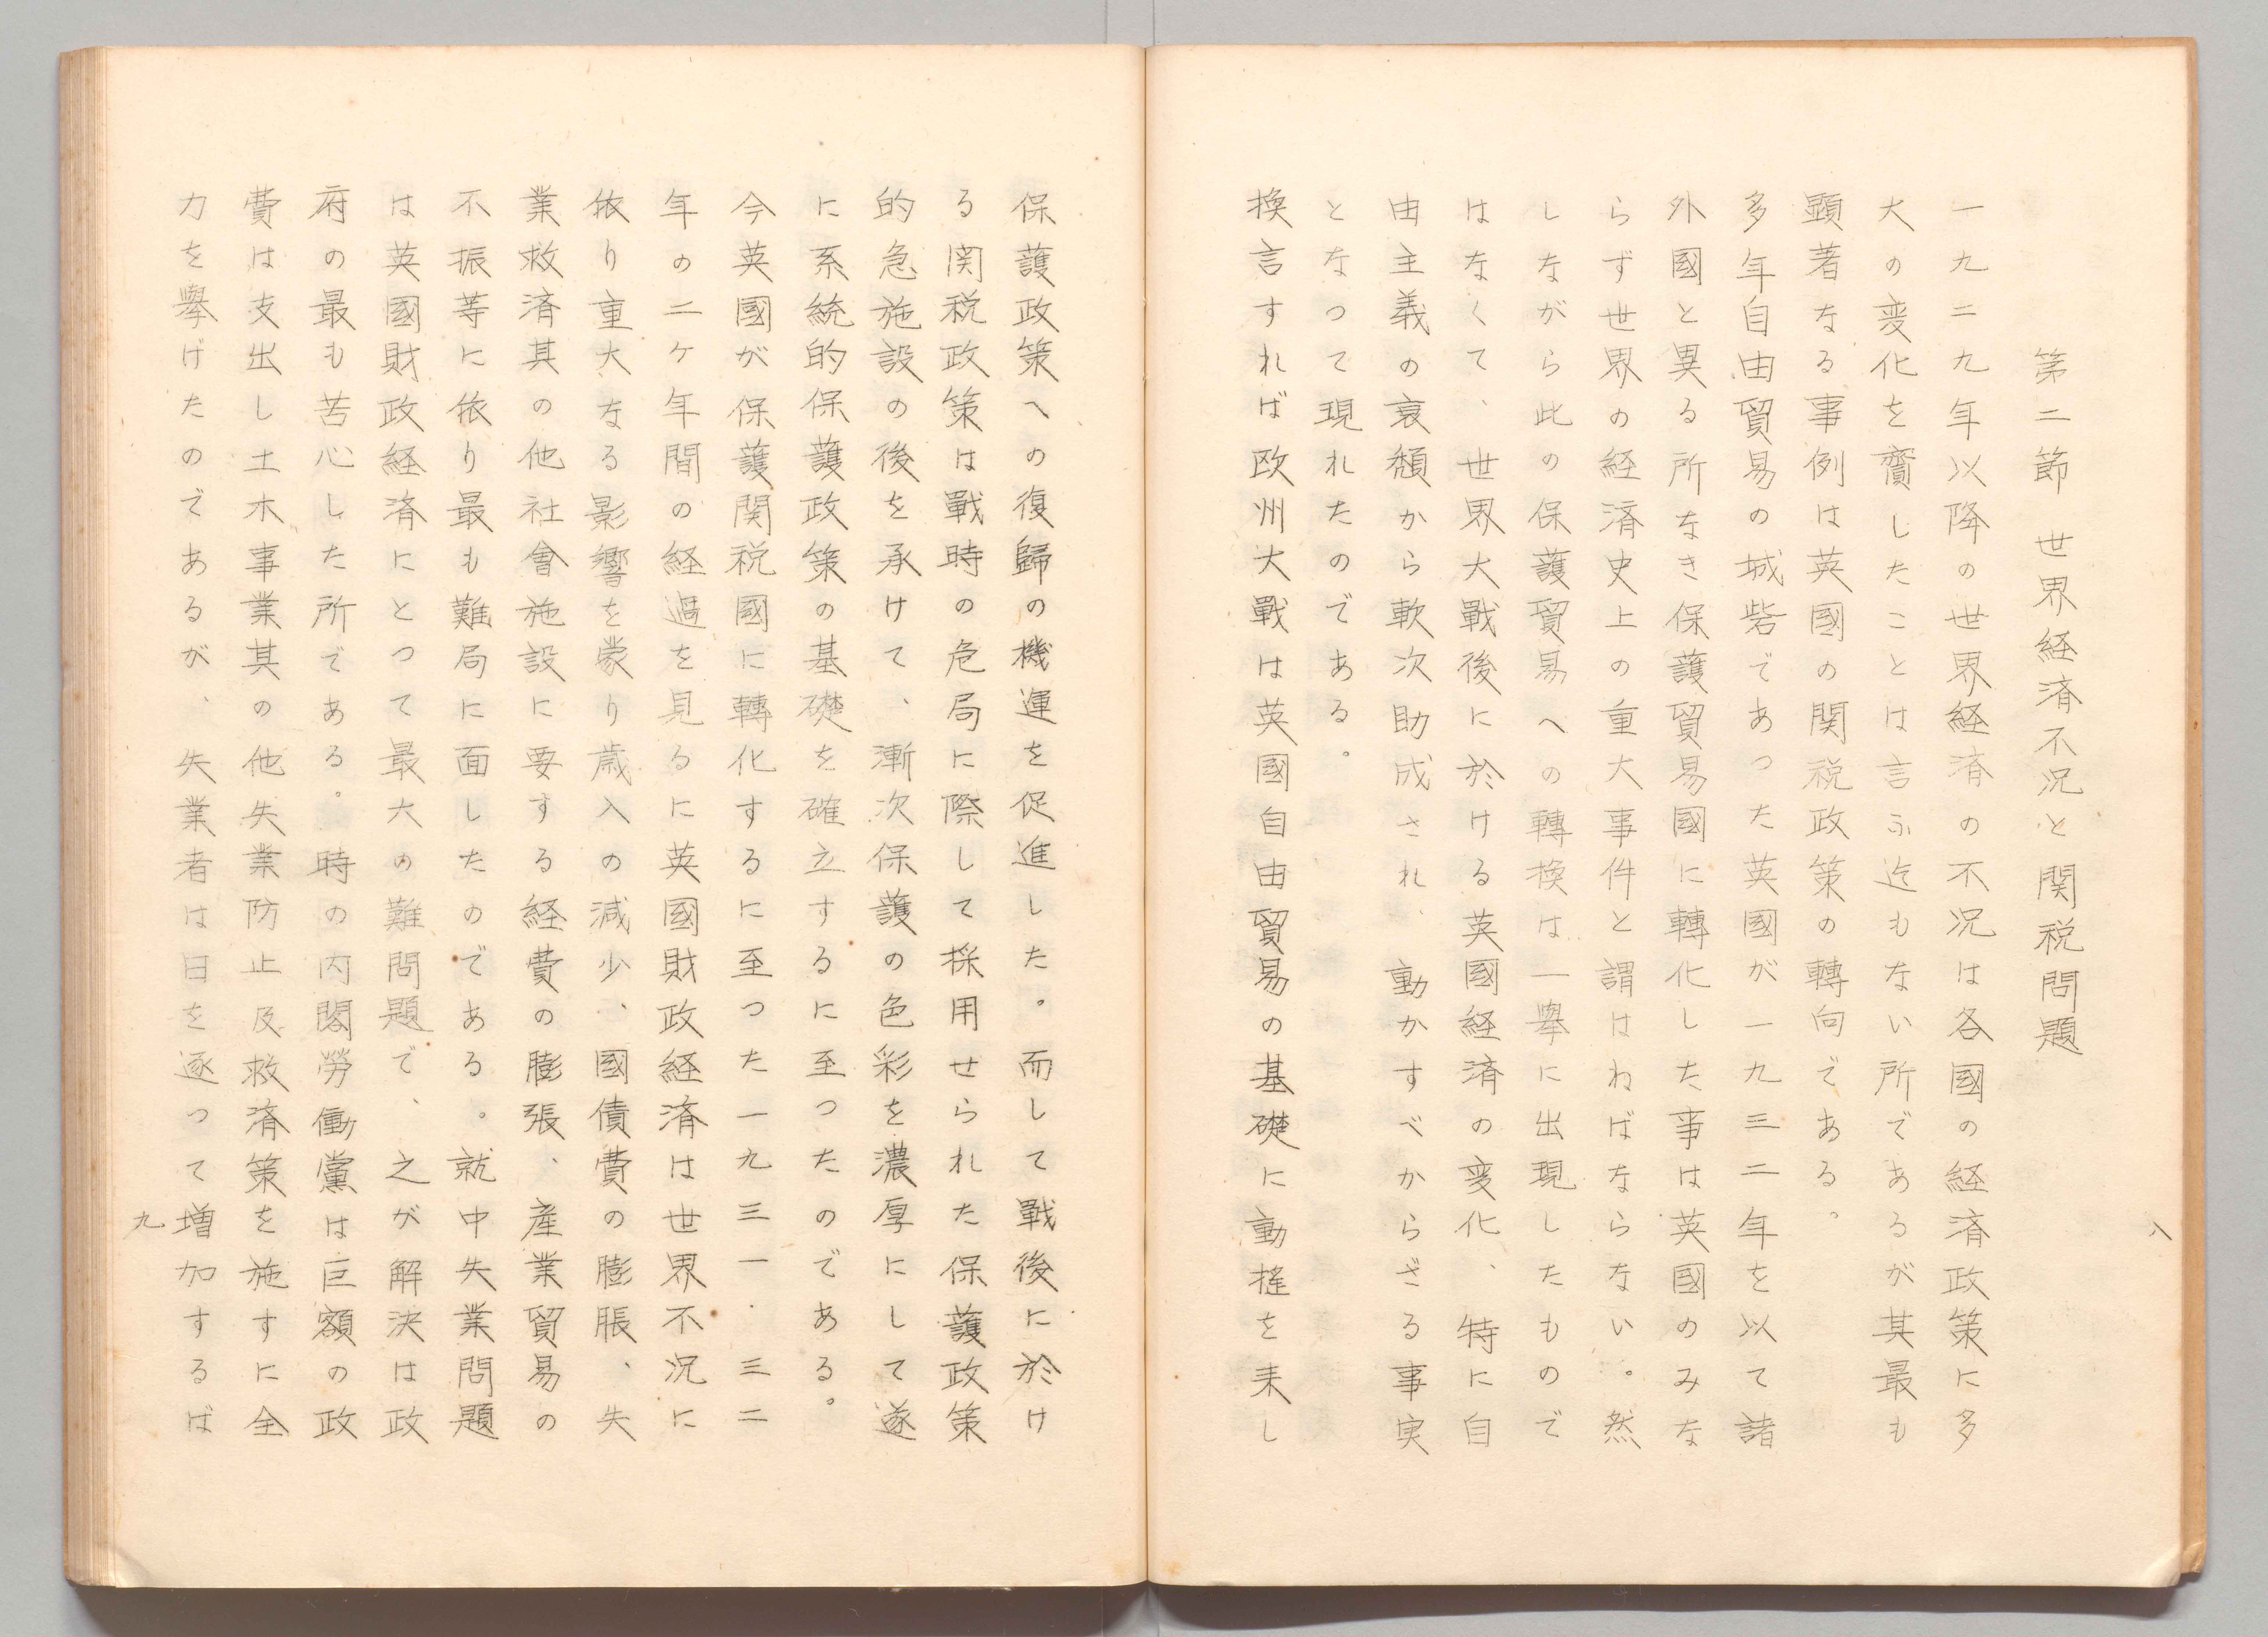 八
第二節　世界経済不況と関税問題
一九二九年以降の世界経済の不況は各國の経済政策に多
大の変化を齎したことは言ふ迄もない所であるが其最も
顕著なる事例は英國の関税政策の轉向である。
多年自由貿易の城砦であつた英國が一九三二年を以て諸
外國と異る所なき保護貿易國に轉化した事は英國のみな
らず世界の経済史上の重大事件と謂はねばならない。然
しながら此の保護貿易への轉換は一擧に出現したもので
はなくて、世界大戰後に於ける英國経済の変化、特に自
由主義の衰頽から軟次助成され、動かすべからざる事実
となつて現れたのである。
換言すれば欧州大戰は英國自由貿易の基礎に動揺を来し
保護政策への復歸の機運を促進した。而して戰後に於け
る関税政策は戰時の危局に際して採用せられた保護政策
的急施設の後を承けて、漸次保護の色彩を濃厚にして遂
に系統的保護政策の基礎を確立するに至つたのである。
今英國が保護関税國に轉化するに至つた一九三一・三二
年の二ケ年間の経過を見るに英國財政経済は世界不況に
依り重大なる影響を蒙り歳入の減少、國債費の膨脹、失
業救済其の他社會施設に要する経費の膨張、産業貿易の
不振等に依り最も難局に面したのである。就中失業問題
は英國財政経済にとつて最大の難問題で、之が解決は政
府の最も苦心した所である。時の内閣勞働黨は巨額の政
費は支出し土木事業其の他失業防止及救済策を施すに全
力を擧げたのであるが、失業者は日を逐つて増加するば
九